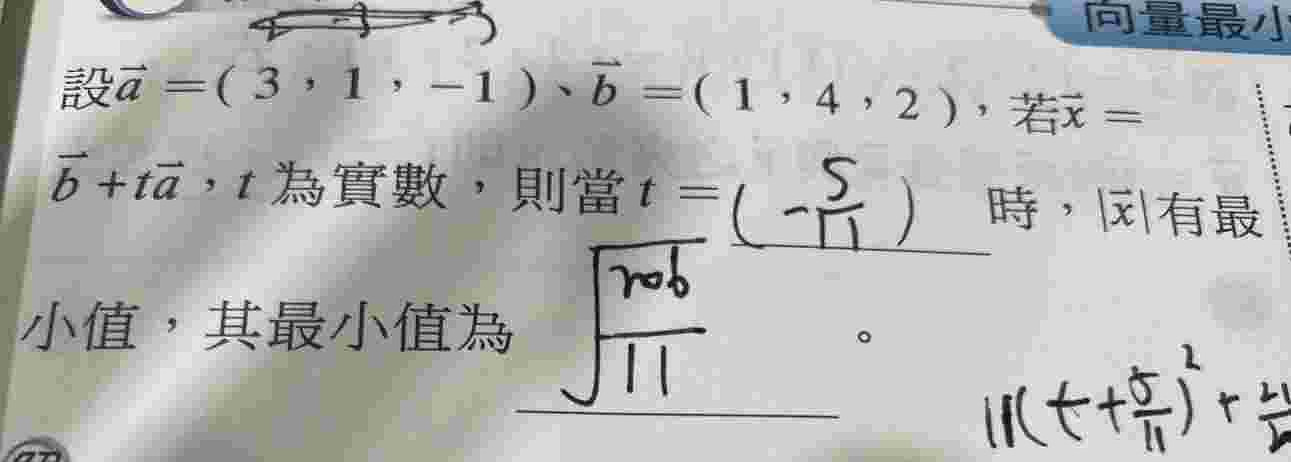 向量最小
設a⃗ =( 3 , 1 , -1 )、b⃗ =( 1 , 4 , 2 ),若x⃗ =
b⃗ +ta⃗ ,t 為實數,則當 t =(-5/11) 時,|x⃗|有最
小值,其最小值為 √(206/11) 。
11(t+5/11)² +